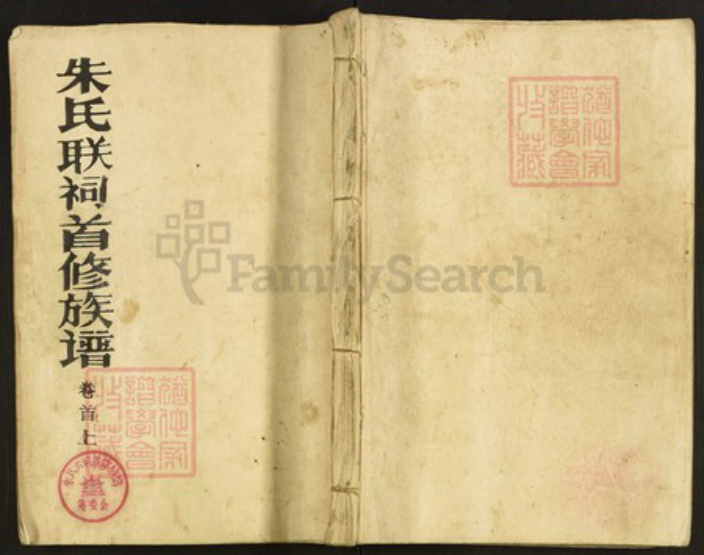 朱氏联祠首修族谱
卷首上
FamilySearch
猶他家
譜學會
收藏
猶他家
譜學會
收藏